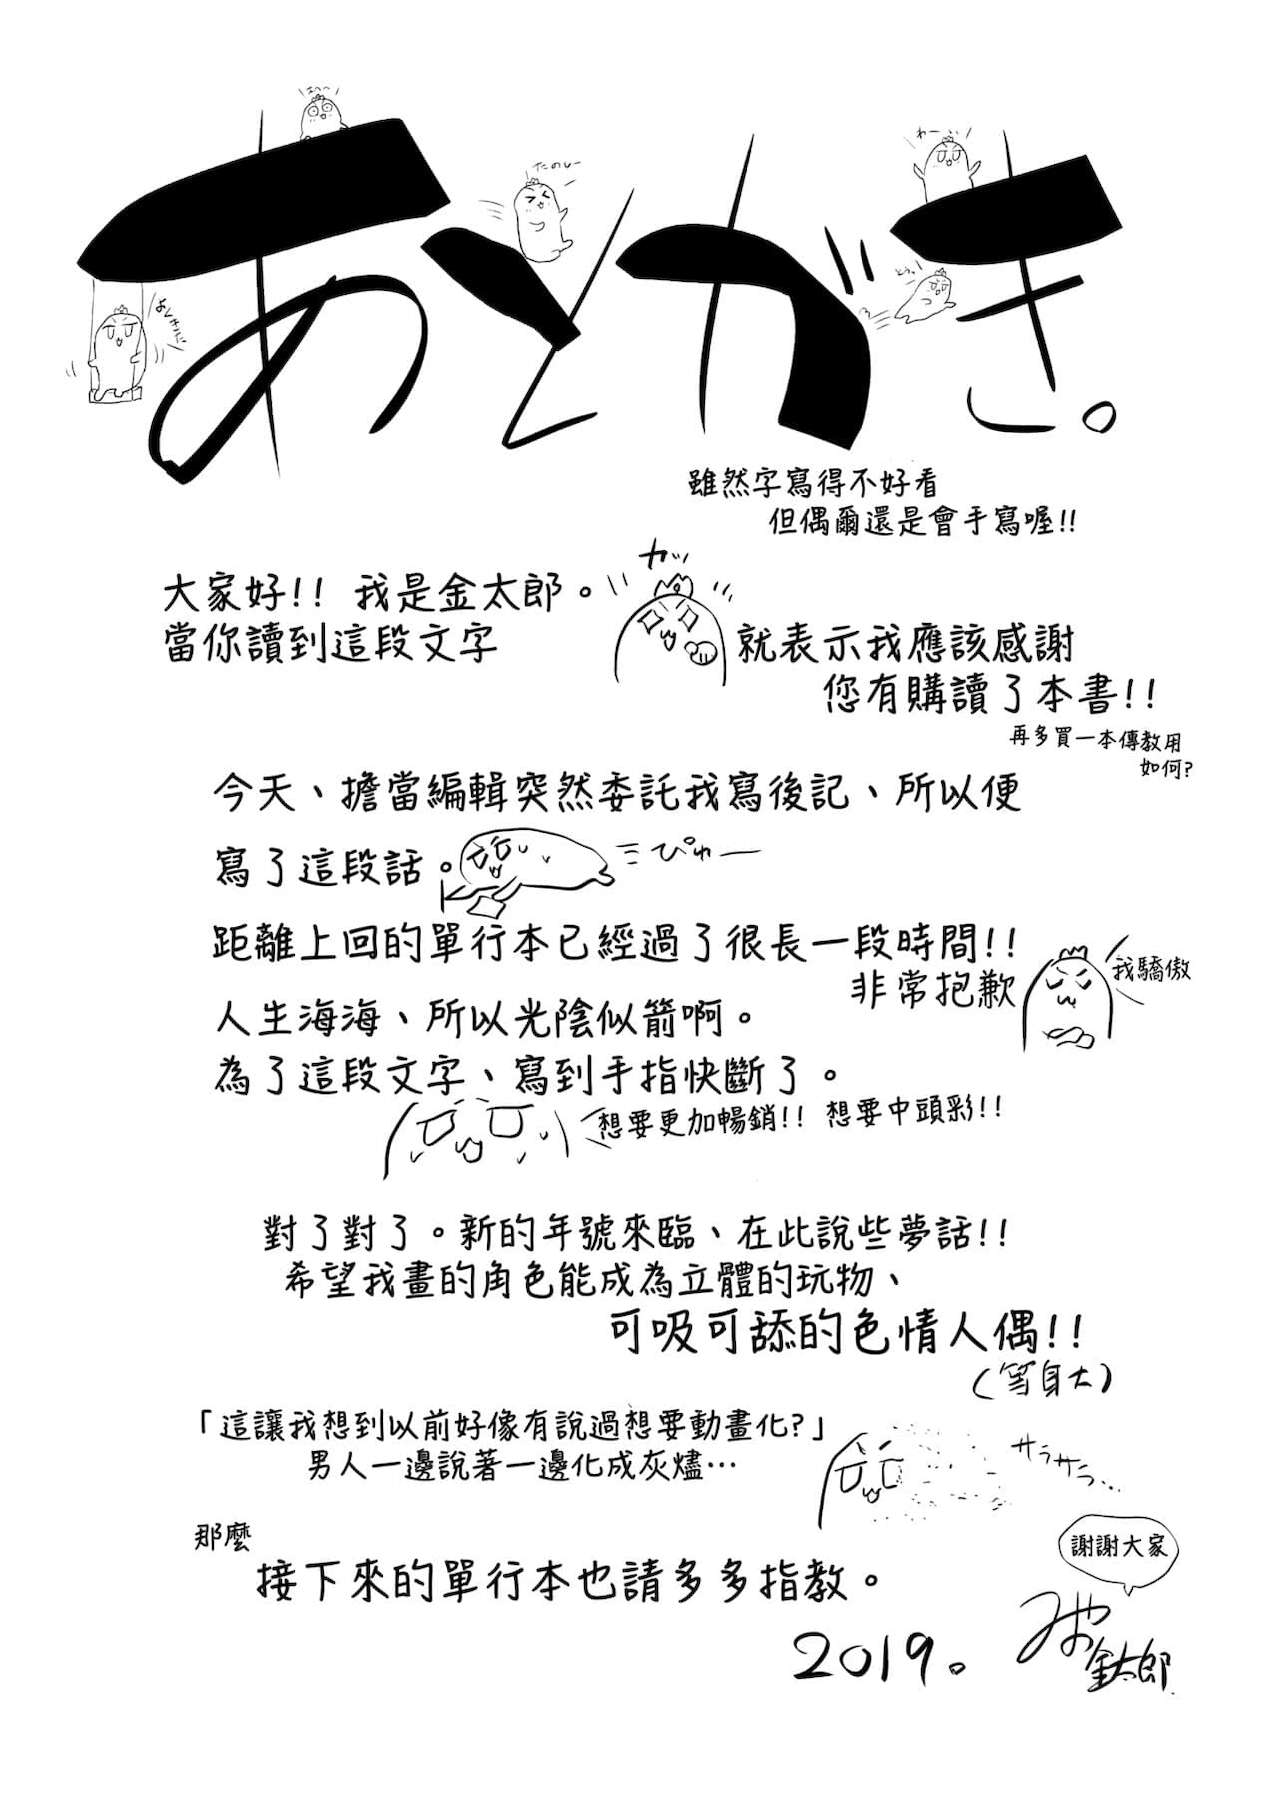 あとがき。
たのしー
わーぃ
雖然字寫得不好看
但偶爾還是會手寫喔!!
カッ
大家好!! 我是金太郎。
當你讀到這段文字
就表示我應該感謝
您有購讀了本書!!
再多買一本傳教用
如何?
今天、擔當編輯突然委託我寫後記、所以便
寫了這段話。
ぴゅー
距離上回的單行本已經過了很長一段時間!!
非常抱歉
我驕傲
人生海海、所以光陰似箭啊。
為了這段文字、寫到手指快斷了。
想要更加暢銷!! 想要中頭彩!!
對了對了。新的年號來臨、在此說些夢話!!
希望我畫的角色能成為立體的玩物、
可吸可舔的色情人偶!!
(等身大)
「這讓我想到以前好像有說過想要動畫化?」
男人一邊說著一邊化成灰燼…
サラサラ…
那麼
接下來的單行本也請多多指教。
謝謝大家
2019。
金太郎